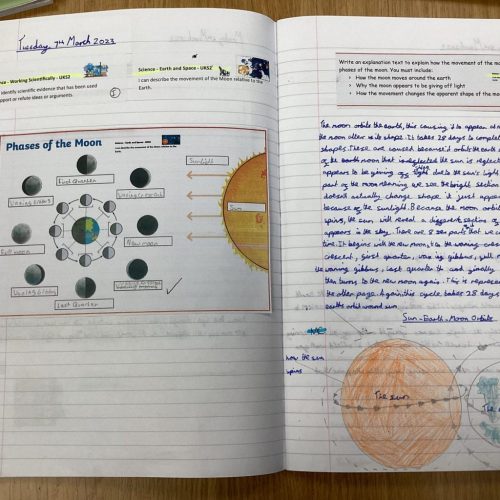 Tuesday 7th March 2023
Science - Working Scientifically - UKS2
identify scientific evidence that has been used
support or refute ideas or arguments.
Science - Earth and Space - UKS2
I can describe the movement of the Moon relative to the
Earth.
Phases of the Moon
Science - Earth and Space - UKS2
I can describe the movement of the Moon relative to the
Earth.
Sunlight
First Quarter
Waxing Crescent
Sun
Full moon
New moon
Last Quarter
Write an explanation text to explain how the movement of the mo
phases of the moon. You must include:
How the moon moves around the earth
Why the moon appears to be giving off light
How the movement changes the apparent shape of the moo
The moon orbits the earth, this causing it to appear
the moon alter its shape. It takes 28 days to complet
shapes. These are caused because it orbits the earth
of the earth moon that is reflected the sun is
appears to be giving off light due to the sun's light
part of the moon meaning we see the bright section
doesn't actually change shape it just appear
because of the sunlight. Because the moon orbit
spins, the sun will reveal a different section of
appears in the sky. There are 8 parts that we ca
time. It begins with the new moon, to the waxing
crescent, first quarter, waxing gibbous, full mo
the waning gibbous, last quarter and finally
then turns to the new moon again. This is represe
the other page. Again, this cycle takes 28 days
earths orbit around sun
Sun-Earth-Moon Orbits
how the sun
spins
The sun